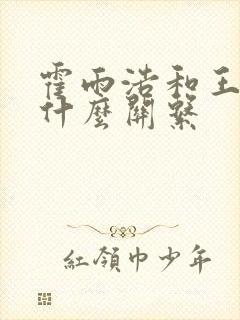 霍雨浩和王
什麼關繫
紅領巾少年